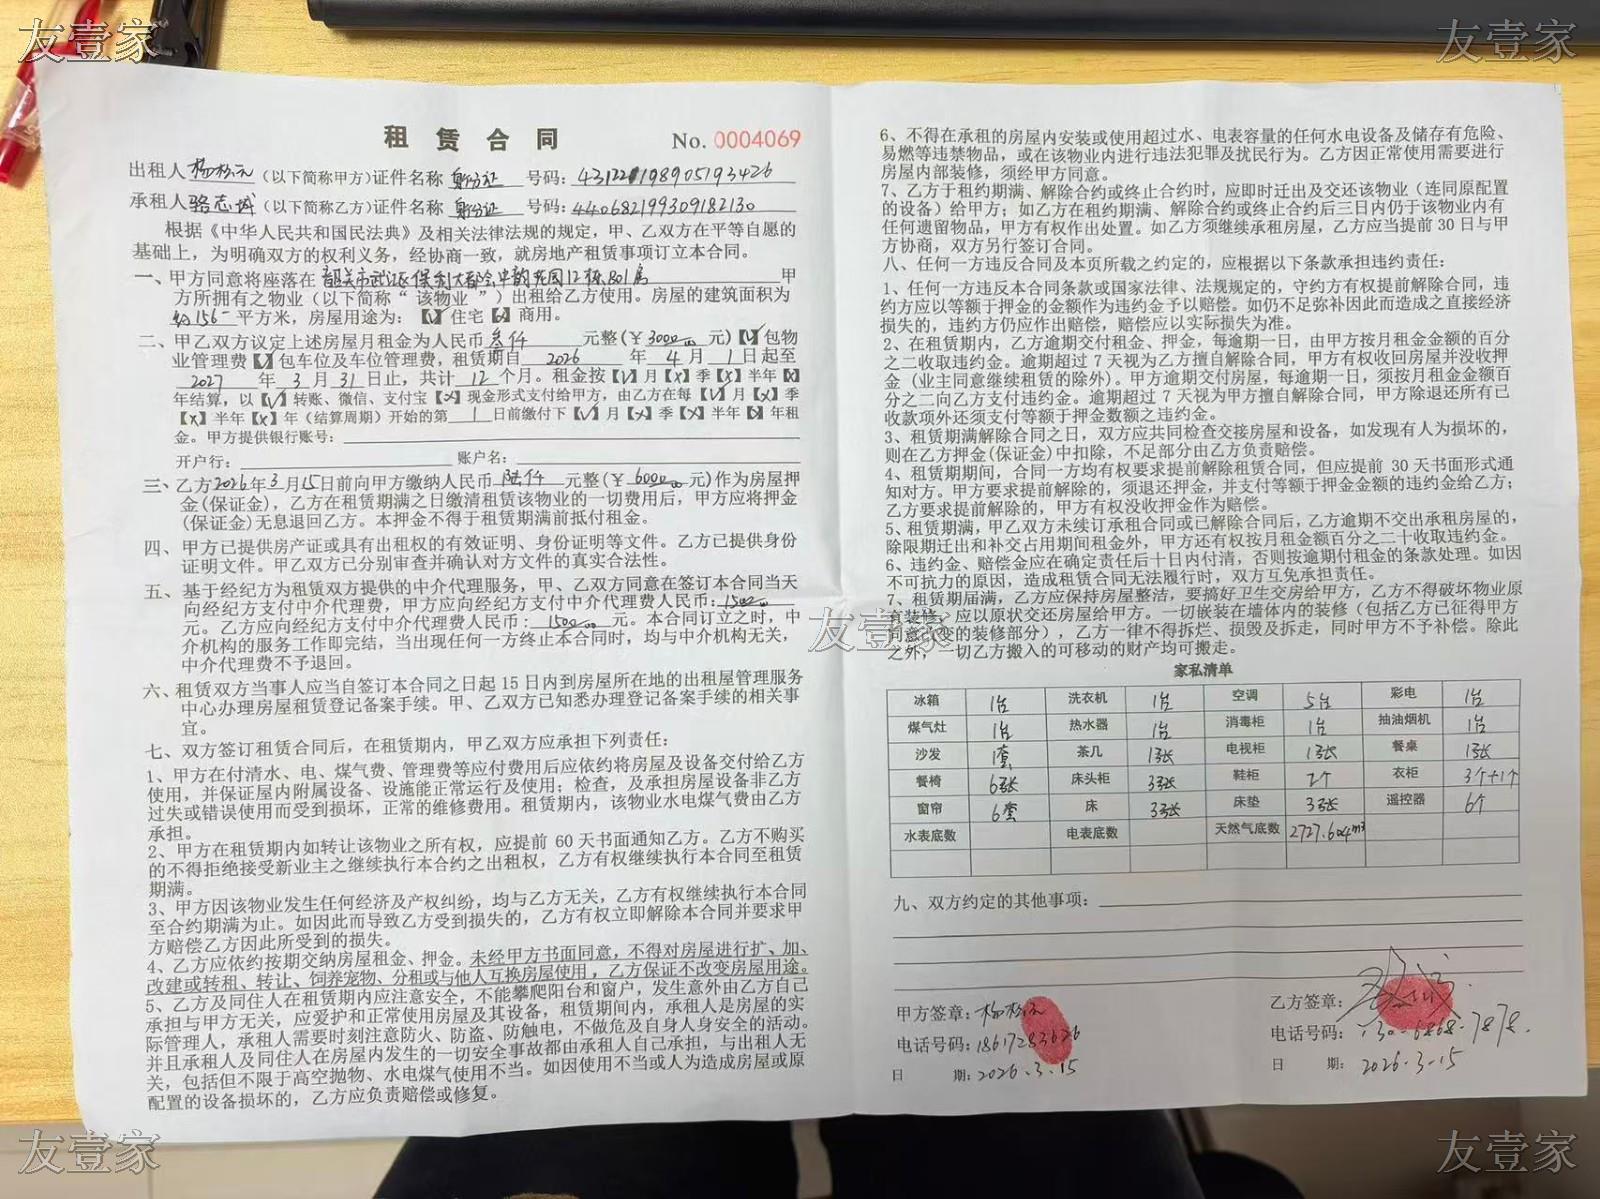 友壹家
友壹家
租 赁 合 同
No. 0004069
出租人 （以下简称甲方）证件名称 身份证 号码：431221198905193426
承租人 骆志斌 （以下简称乙方）证件名称 身份证 号码：440682199309182130
根据《中华人民共和国民法典》及相关法律法规的规定，甲、乙双方在平等自愿的
基础上，为明确双方的权利义务，经协商一致，就房地产租赁事项订立本合同。
一、甲方同意将座落在 韶关市武江区保利大都会中韵花园12栋801房 甲
方所拥有之物业（以下简称“ 该物业 ”）出租给乙方使用。房屋的建筑面积为
约156 平方米，房屋用途为：【√】住宅【x】商用。
二、甲乙双方议定上述房屋月租金为人民币 叁仟 元整(￥3000.00 元)【√】包物
业管理费【√】包车位及车位管理费，租赁期自 2026 年 4 月 1 日起至
2027 年 3 月 31 日止，共计 12 个月。租金按【√】月【x】季【x】半年【x】
年结算，以【√】转账、微信、支付宝【x】现金形式支付给甲方，由乙方在每【√】月【x】季
【x】半年【x】年（结算周期）开始的第 1 日前缴付下【√】月【x】季【x】半年【x】年租
金。甲方提供银行账号：
开户行： 账户名：
三、乙方2026年3月15日前向甲方缴纳人民币 陆仟 元整(￥ 6000.00 元)作为房屋押
金(保证金)，乙方在租赁期满之日缴清租赁该物业的一切费用后，甲方应将押金
(保证金)无息退回乙方。本押金不得于租赁期满前抵付租金。
四、甲方已提供房产证或具有出租权的有效证明、身份证明等文件。乙方已提供身份
证明文件。甲乙双方已分别审查并确认对方文件的真实合法性。
五、基于经纪方为租赁双方提供的中介代理服务，甲、乙双方同意在签订本合同当天
向经纪方支付中介代理费，甲方应向经纪方支付中介代理费人民币：1500.00
元。乙方应向经纪方支付中介代理费人民币：1500.00 元。本合同订立之时，中
介机构的服务工作即完结，当出现任何一方终止本合同时，均与中介机构无关，
中介代理费不予退回。
六、租赁双方当事人应当自签订本合同之日起 15 日内到房屋所在地的出租屋管理服务
中心办理房屋租赁登记备案手续。甲、乙双方已知悉办理登记备案手续的相关事
宜。
七、双方签订租赁合同后，在租赁期内，甲乙双方应承担下列责任：
1、甲方在付清水、电、煤气费、管理费等应付费用后应依约将房屋及设备交付给乙方
使用，并保证屋内附属设备、设施能正常运行及使用；检查，及承担房屋设备非乙方
过失或错误使用而受到损坏，正常的维修费用。租赁期内，该物业水电煤气费由乙方
承担。
2、甲方在租赁期内如转让该物业之所有权，应提前 60 天书面通知乙方。乙方不购买
的不得拒绝接受新业主之继续执行本合约之出租权，乙方有权继续执行本合同至租赁
期满。
3、甲方因该物业发生任何经济及产权纠纷，均与乙方无关，乙方有权继续执行本合同
至合约期满为止。如因此而导致乙方受到损失的，乙方有权立即解除本合同并要求甲
方赔偿乙方因此所受到的损失。
4、乙方应依约按期交纳房屋租金、押金。未经甲方书面同意，不得对房屋进行扩、加、
改建或转租、转让、饲养宠物、分租或与他人互换房屋使用，乙方保证不改变房屋用途。
5、乙方及同住人在租赁期内应注意安全，不能攀爬阳台和窗户，发生意外由乙方自己
承担与甲方无关，应爱护和正常使用房屋及其设备，租赁期间内，承租人是房屋的实
际管理人，承租人需要时刻注意防火、防盗、防触电，不做危及自身人身安全的活动。
并且承租人及同住人在房屋内发生的一切安全事故都由承租人自己承担，与出租人无
关，包括但不限于高空抛物、水电煤气使用不当。如因使用不当或人为造成房屋或原
配置的设备损坏的，乙方应负责赔偿或修复。
6、不得在承租的房屋内安装或使用超过水、电表容量的任何水电设备及储存有危险、
易燃等违禁物品，或在该物业内进行违法犯罪及扰民行为。乙方因正常使用需要进行
房屋内部装修，须经甲方同意。
7、乙方于租约期满、解除合约或终止合约时，应即时迁出及交还该物业（连同原配置
的设备）给甲方；如乙方在租约期满、解除合约或终止合约后三日内仍于该物业内有
任何遗留物品，甲方有权作出处置。如乙方须继续承租房屋，乙方应当提前 30 日与甲
方协商，双方另行签订合同。
八、任何一方违反合同及本页所载之约定的，应根据以下条款承担违约责任：
1、任何一方违反本合同条款或国家法律、法规规定的，守约方有权提前解除合同，违
约方应以等额于押金的金额作为违约金予以赔偿。如仍不足弥补因此而造成之直接经济
损失的，违约方仍应作出赔偿，赔偿应以实际损失为准。
2、在租赁期内，乙方逾期交付租金、押金，每逾期一日，由甲方按月租金金额的百分
之二收取违约金。逾期超过 7 天视为乙方擅自解除合同，甲方有权收回房屋并没收押
金（业主同意继续租赁的除外）。甲方逾期交付房屋，每逾期一日，须按月租金金额百
分之二向乙方支付违约金。逾期超过 7 天视为甲方擅自解除合同，甲方除退还所有已
收款项外还须支付等额于押金数额之违约金。
3、租赁期满解除合同之日，双方应共同检查交接房屋和设备，如发现有人为损坏的，
则在乙方押金(保证金)中扣除，不足部分由乙方负责赔偿。
4、租赁期期间，合同一方均有权要求提前解除租赁合同，但应提前 30 天书面形式通
知对方。甲方要求提前解除的，须退还押金，并支付等额于押金金额的违约金给乙方；
乙方要求提前解除的，甲方有权没收押金作为赔偿。
5、租赁期满，甲乙双方未续订承租合同或已解除合同后，乙方逾期不交出承租房屋的，
除限期迁出和补交占用期间租金外，甲方还有权按月租金额百分之二十收取违约金。
6、违约金、赔偿金应在确定责任后十日内付清，否则按逾期付租金的条款处理。如因
不可抗力的原因，造成租赁合同无法履行时，双方互免承担责任。
7、租赁期届满，乙方应保持房屋整洁，要搞好卫生交房给甲方，乙方不得破坏物业原
有装修，应以原状交还房屋给甲方。一切嵌装在墙体内的装修（包括乙方已征得甲方
同意改变的装修部分），乙方一律不得拆烂、损毁及拆走，同时甲方不予补偿。除此
之外，一切乙方搬入的可移动的财产均可搬走。
友壹家
家私清单
冰箱 1台 洗衣机 1台 空调 5台 彩电 1台
煤气灶 1台 热水器 1台 消毒柜 1台 抽油烟机 1台
沙发 1套 茶几 1张 电视柜 1张 餐桌 1张
餐椅 6张 床头柜 3张 鞋柜 2个 衣柜 3个+1个
窗帘 6套 床 3张 床垫 3张 遥控器 6个
水表底数 电表底数 天然气底数 2727.604m³
九、双方约定的其他事项：
甲方签章：
电话号码：18617283626
日 期：2026.3.15
乙方签章：
电话号码：130-6868-7878.
日 期：2026.3.15
友壹家
友壹家